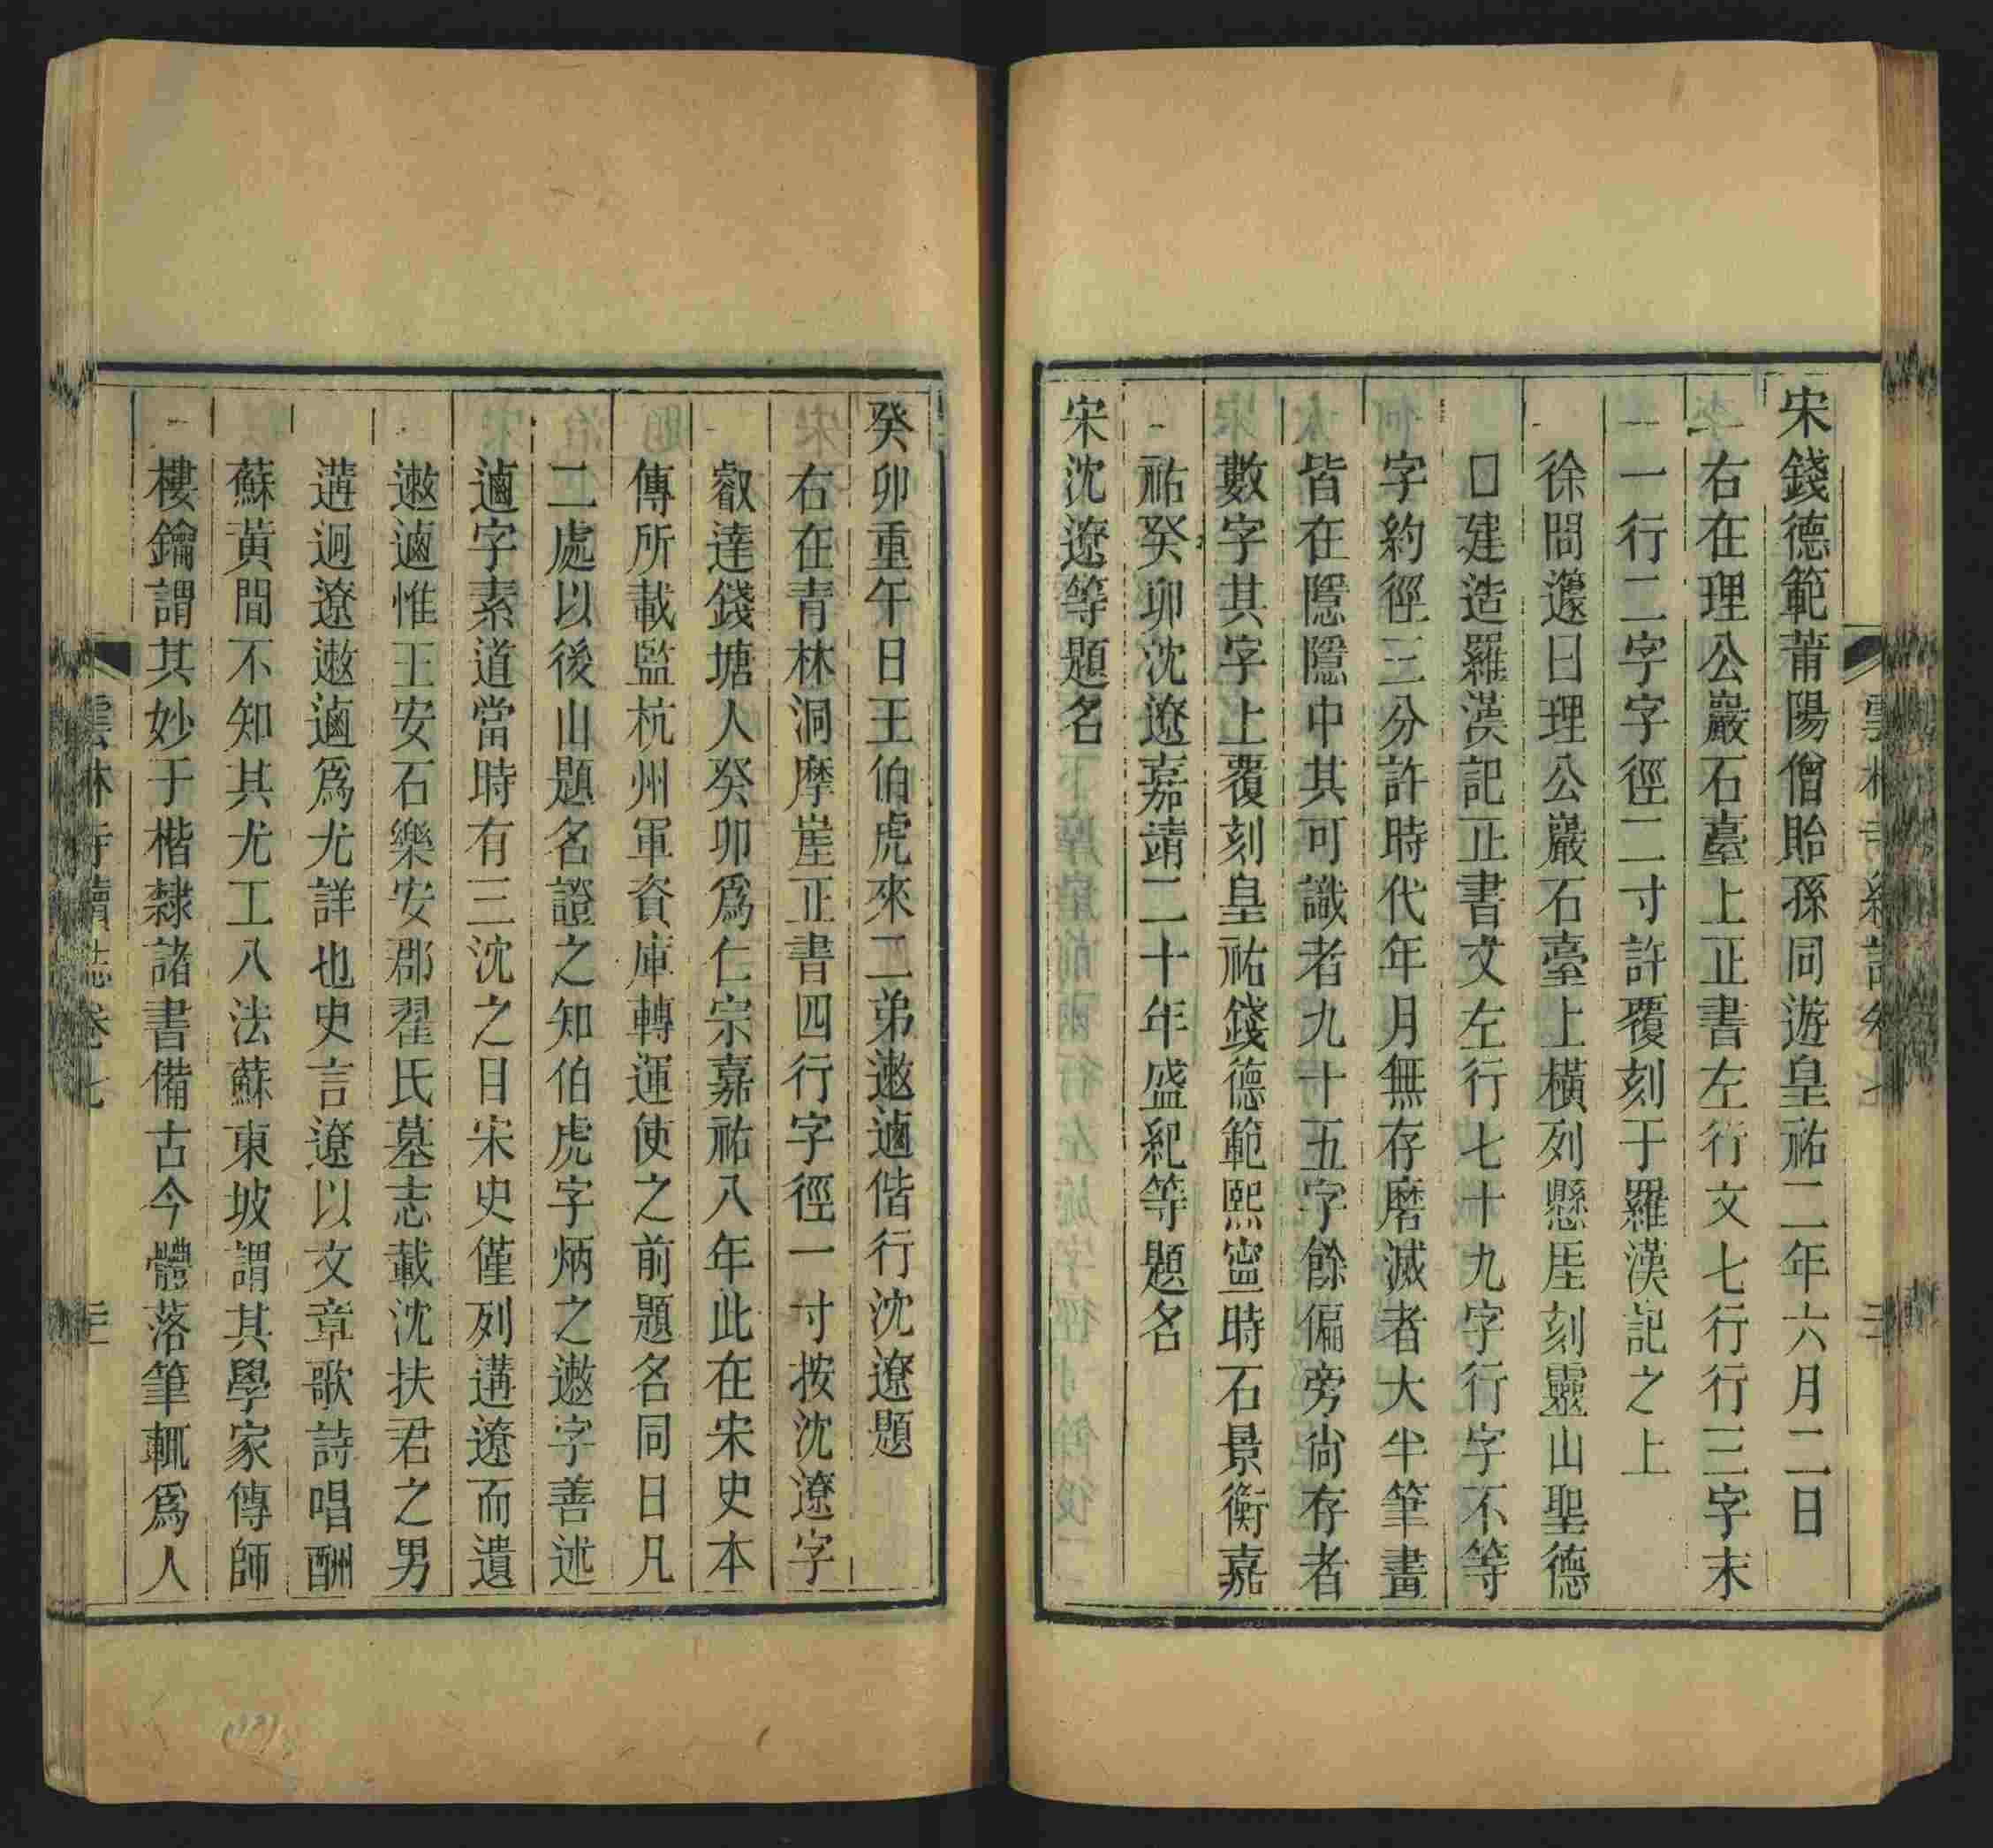 宋錢德範莆陽僧貽孫同遊皇祐二年六月二日
右在理公巖石臺上正書左行文七行行三字末
一行二字字徑二寸許覆刻于羅漢記之上
徐問蘧曰理公巖石臺上橫列懸厓刻靈山聖德
□建造羅漢記正書文左行七十九字行字不等
字約徑三分許時代年月無存磨滅者大半筆畫
皆在隱隱中其可識者九十五字餘偏旁尚存者
數字其字上覆刻皇祐錢德範熙寍時石景衡嘉
祐癸卯沈遼嘉靖二十年盛紀等題名
宋沈遼等題名
癸卯重午日王伯虎來二弟遬逌偕行沈遼題
右在青林洞摩崖正書四行字徑一寸按沈遼字
叡達錢塘人癸卯爲仁宗嘉祐八年此在宋史本
傳所載監杭州軍資庫轉運使之前題名同日凡
二處以後山題名證之知伯虎字炳之遬字善述
逌字素道當時有三沈之日宋史僅列遘遼而遺
遬逌惟王安石樂安郡翟氏墓志載沈扶君之男
遘迥遼遬逌爲尤詳也史言遼以文章歌詩唱酬
蘇黃間不知其尤工八法蘇東坡謂其學家傳師
樓鑰謂其妙于楷隸諸書備古今體落筆輒爲人
雲林寺續誌卷七